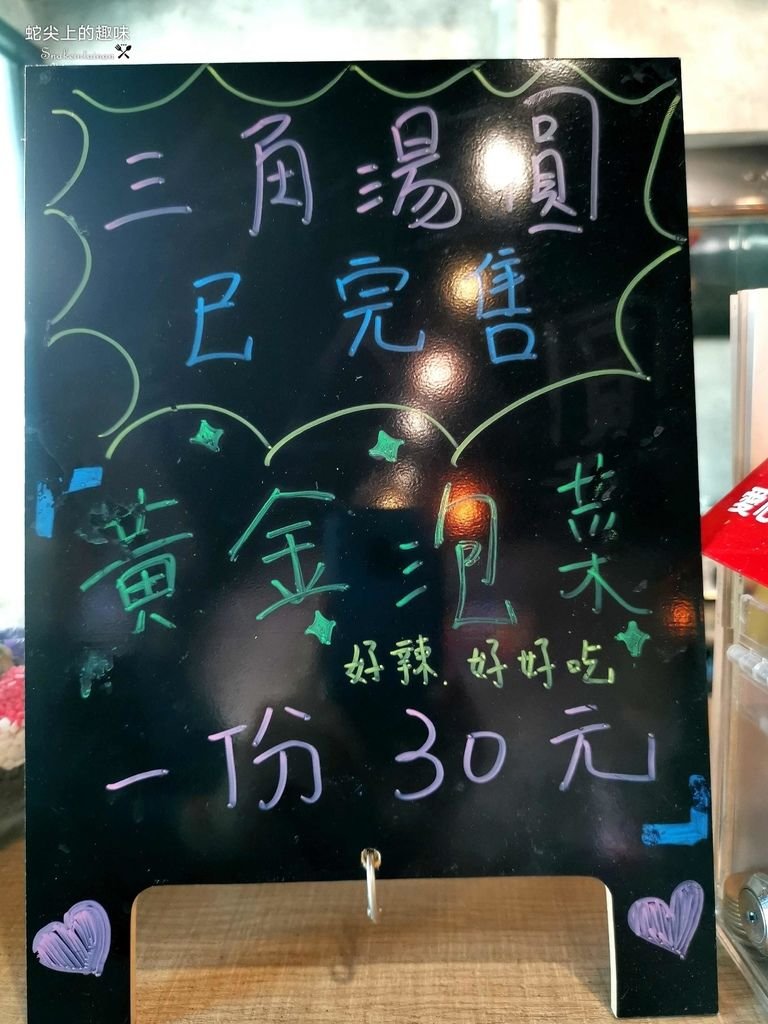 蛇尖上的趣味
Snakeintainan
三角湯圓
已完售
黃金泡菜
好辣.好好吃
一份30元
愛心